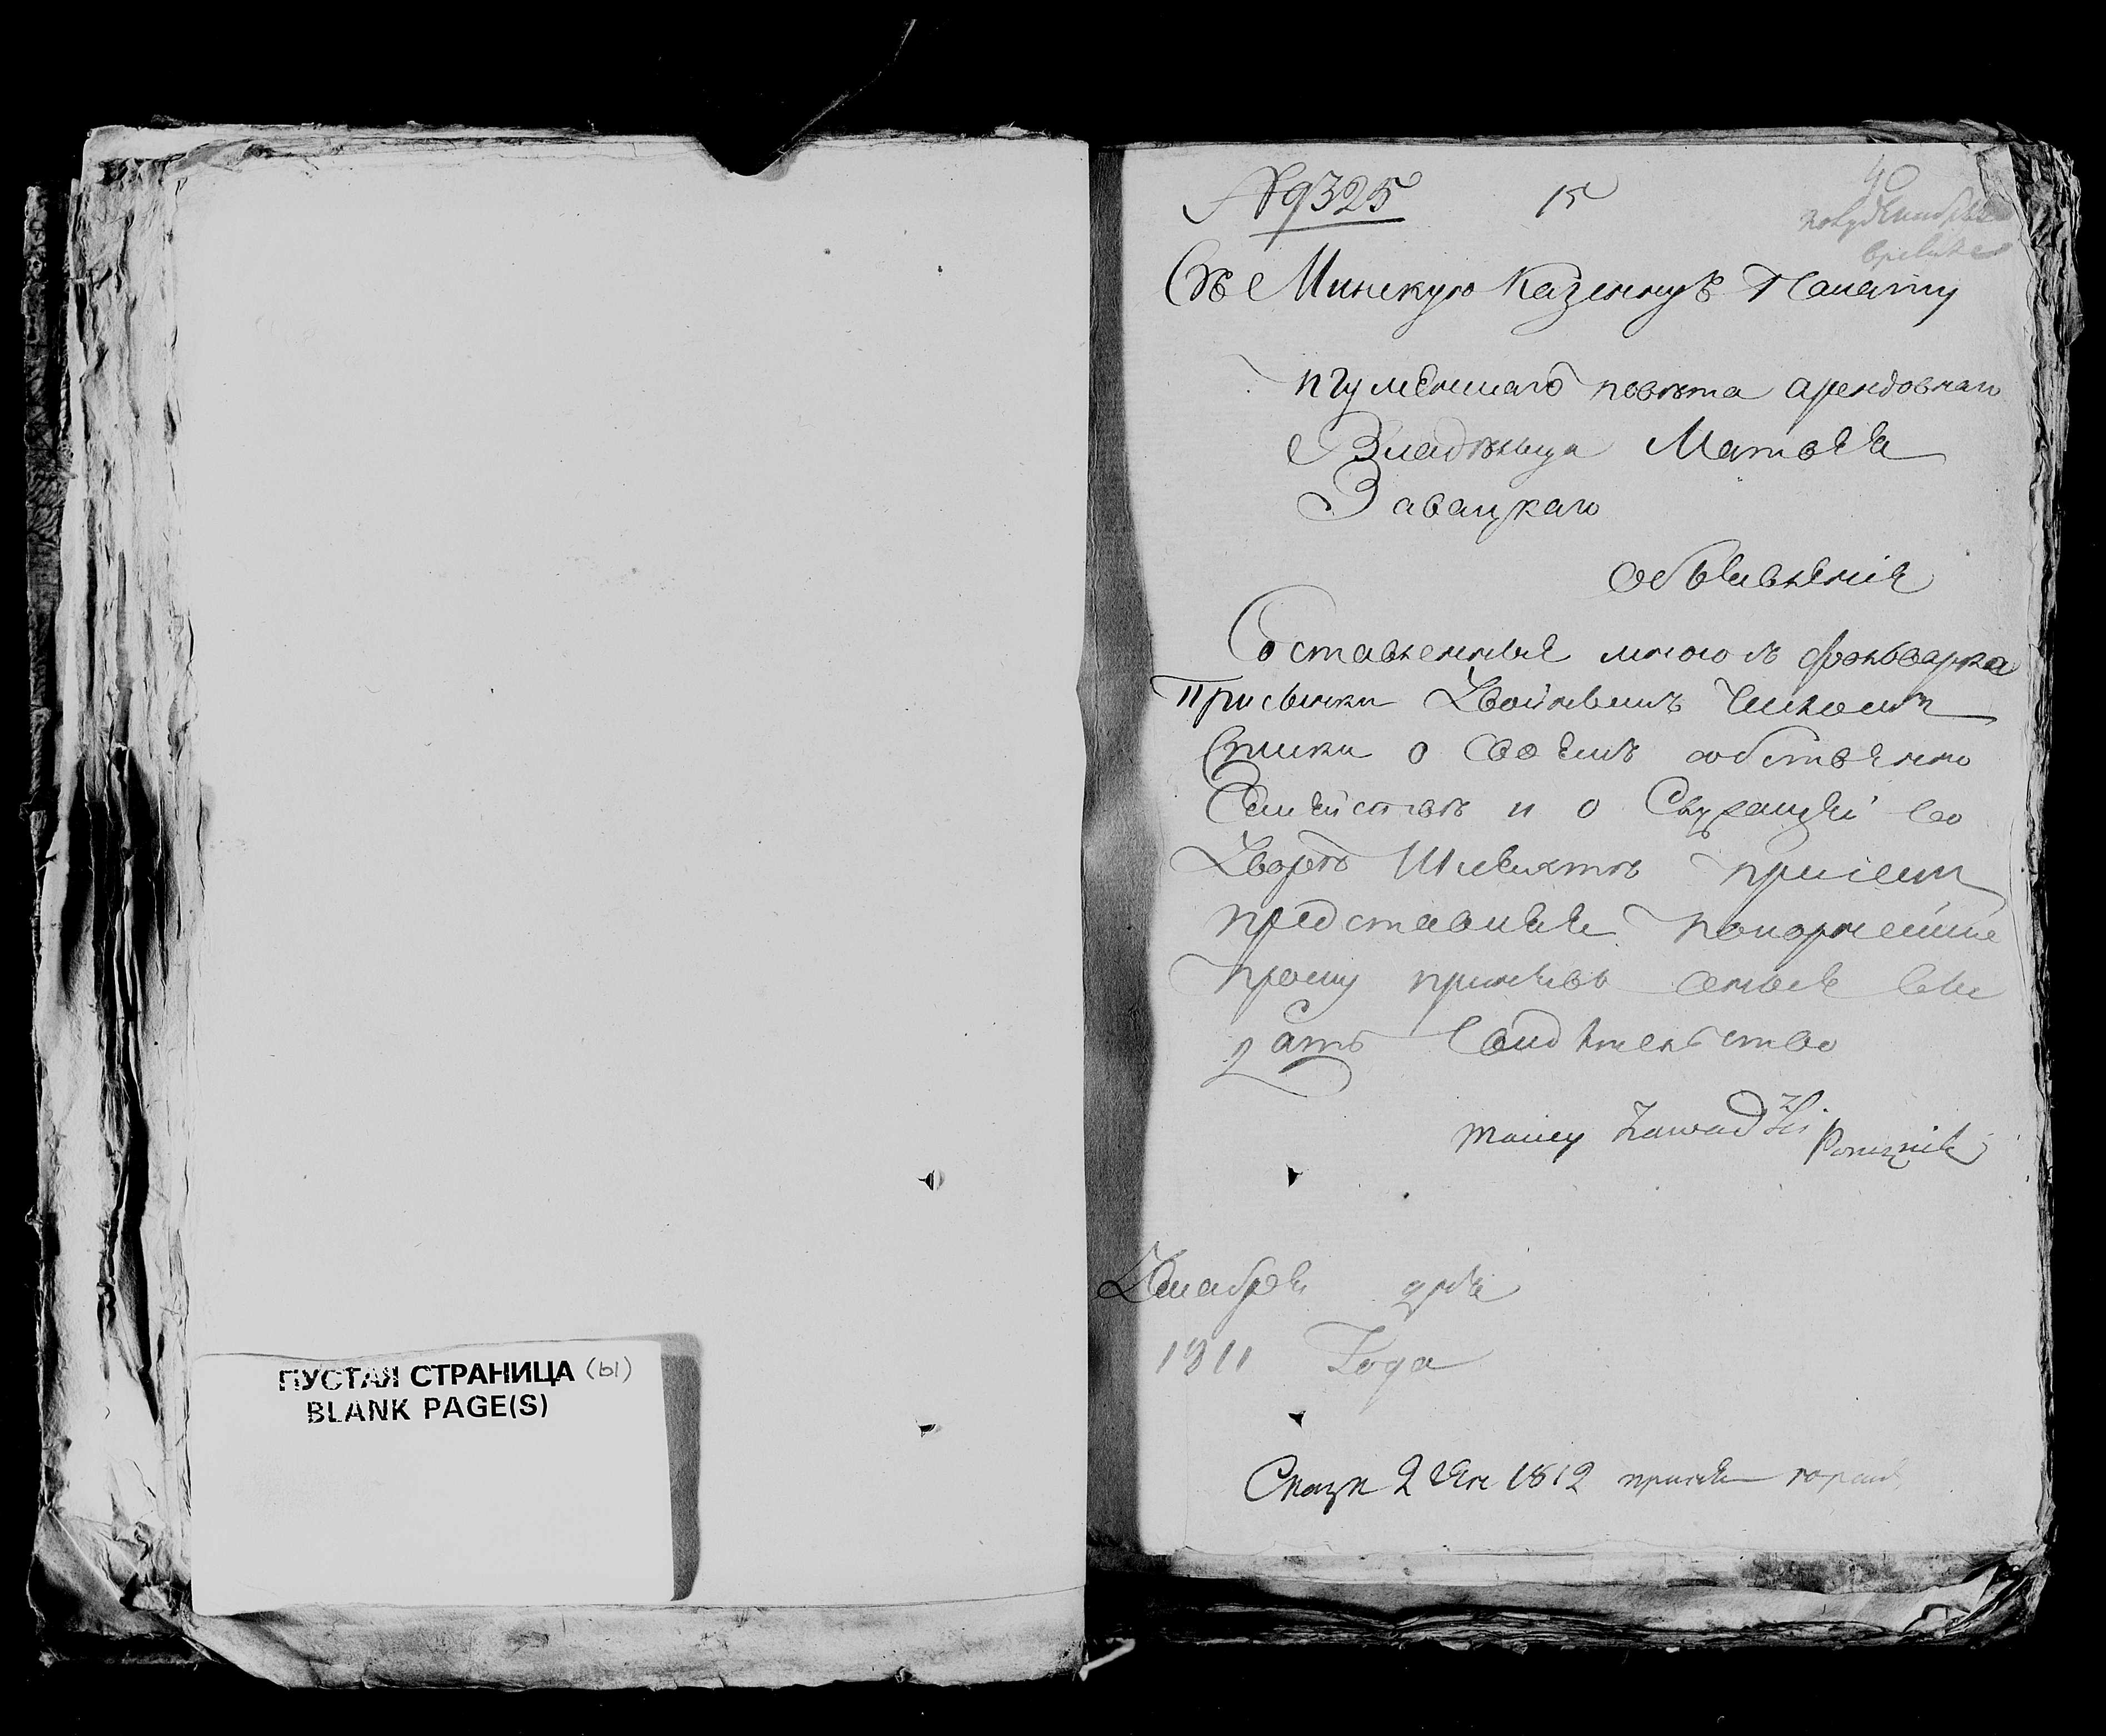 ПУСТАЯ СТРАНИЦА (ы)
BLANK PAGE(S)
№ 9325 15 40
Въ Минскую Казеннуъ Палату
игуменшаго повѣта арендовнаго
Владѣльца Матвея
Завацкаго
объевленіе
Составленные мною ѣ фольварка
Присынки двойнымъ
Списки о своемъ собствено
Семействѣ и о
дворѣ Шлехтѣ присем
представивъ покорнейше
прошу принявъ оные
дать Свидѣтельство
Maciey Zawadzki Porucznik
Декабре дне
1811 Года
2 Ген 1812